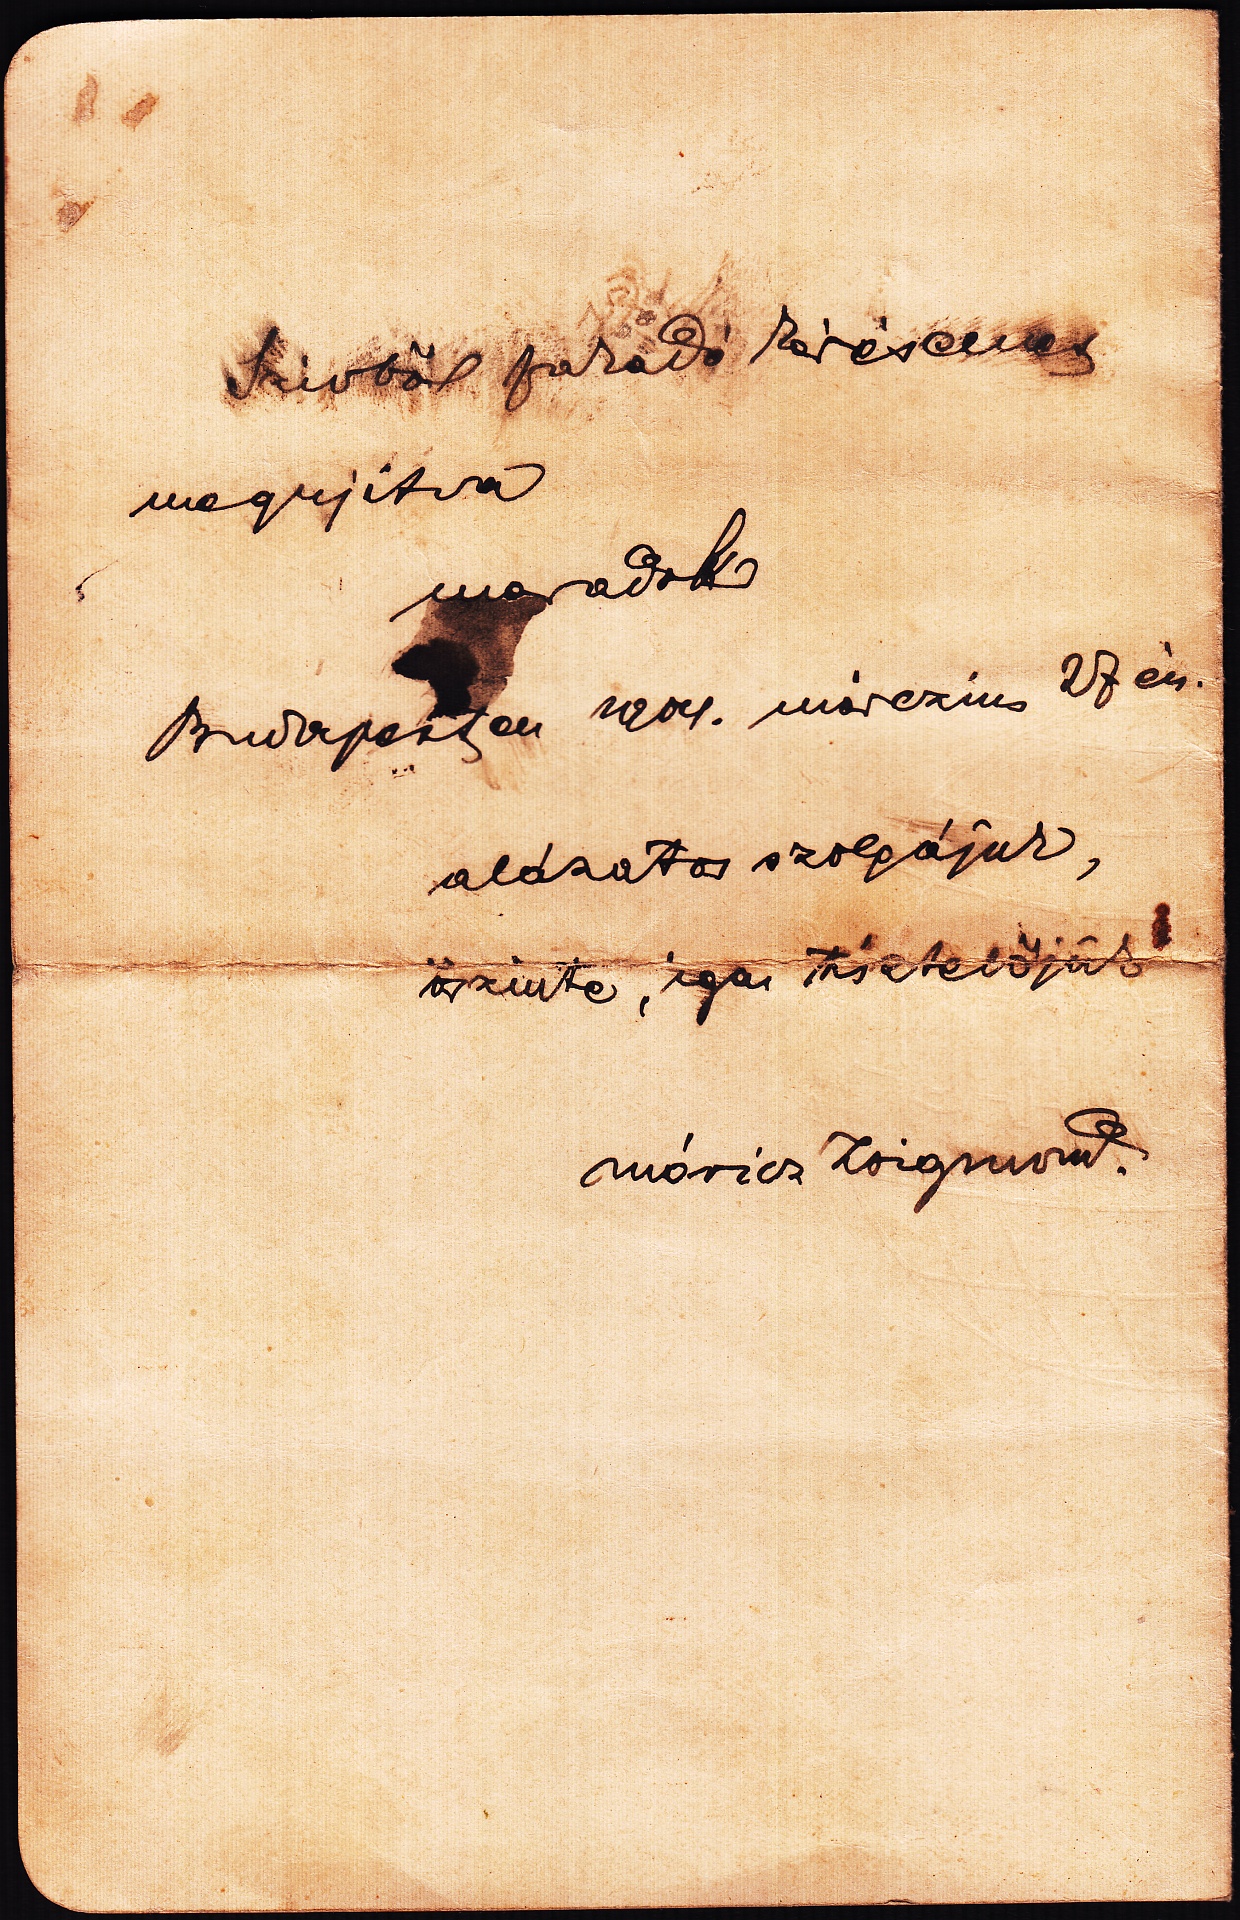 Szivből fakadó kérésemet
megujitva
maradok
Budapesten 1904. márczius 27 én.
alázatos szolgájuk,
őszinte, igaz tisztelőjük
Móricz Zsigmond.